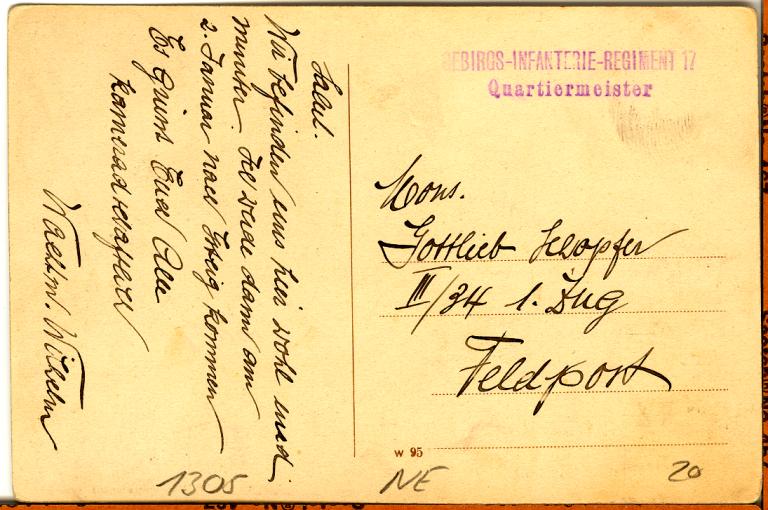 Salut.
Wir befinden uns hier wohl und
munter. Ich werde dann am
2. Januar nach kommen
Es grüsst Euch Alle
Kameradschaftlich
Wachtm. Wilhelm
GEBIRGS-INFANTERIE-REGIMENT 17
Quartiermeister
Mons.
Gottlieb Schopfer
III/34 1. Zug
Feldpost
w 95
1305
NE
20